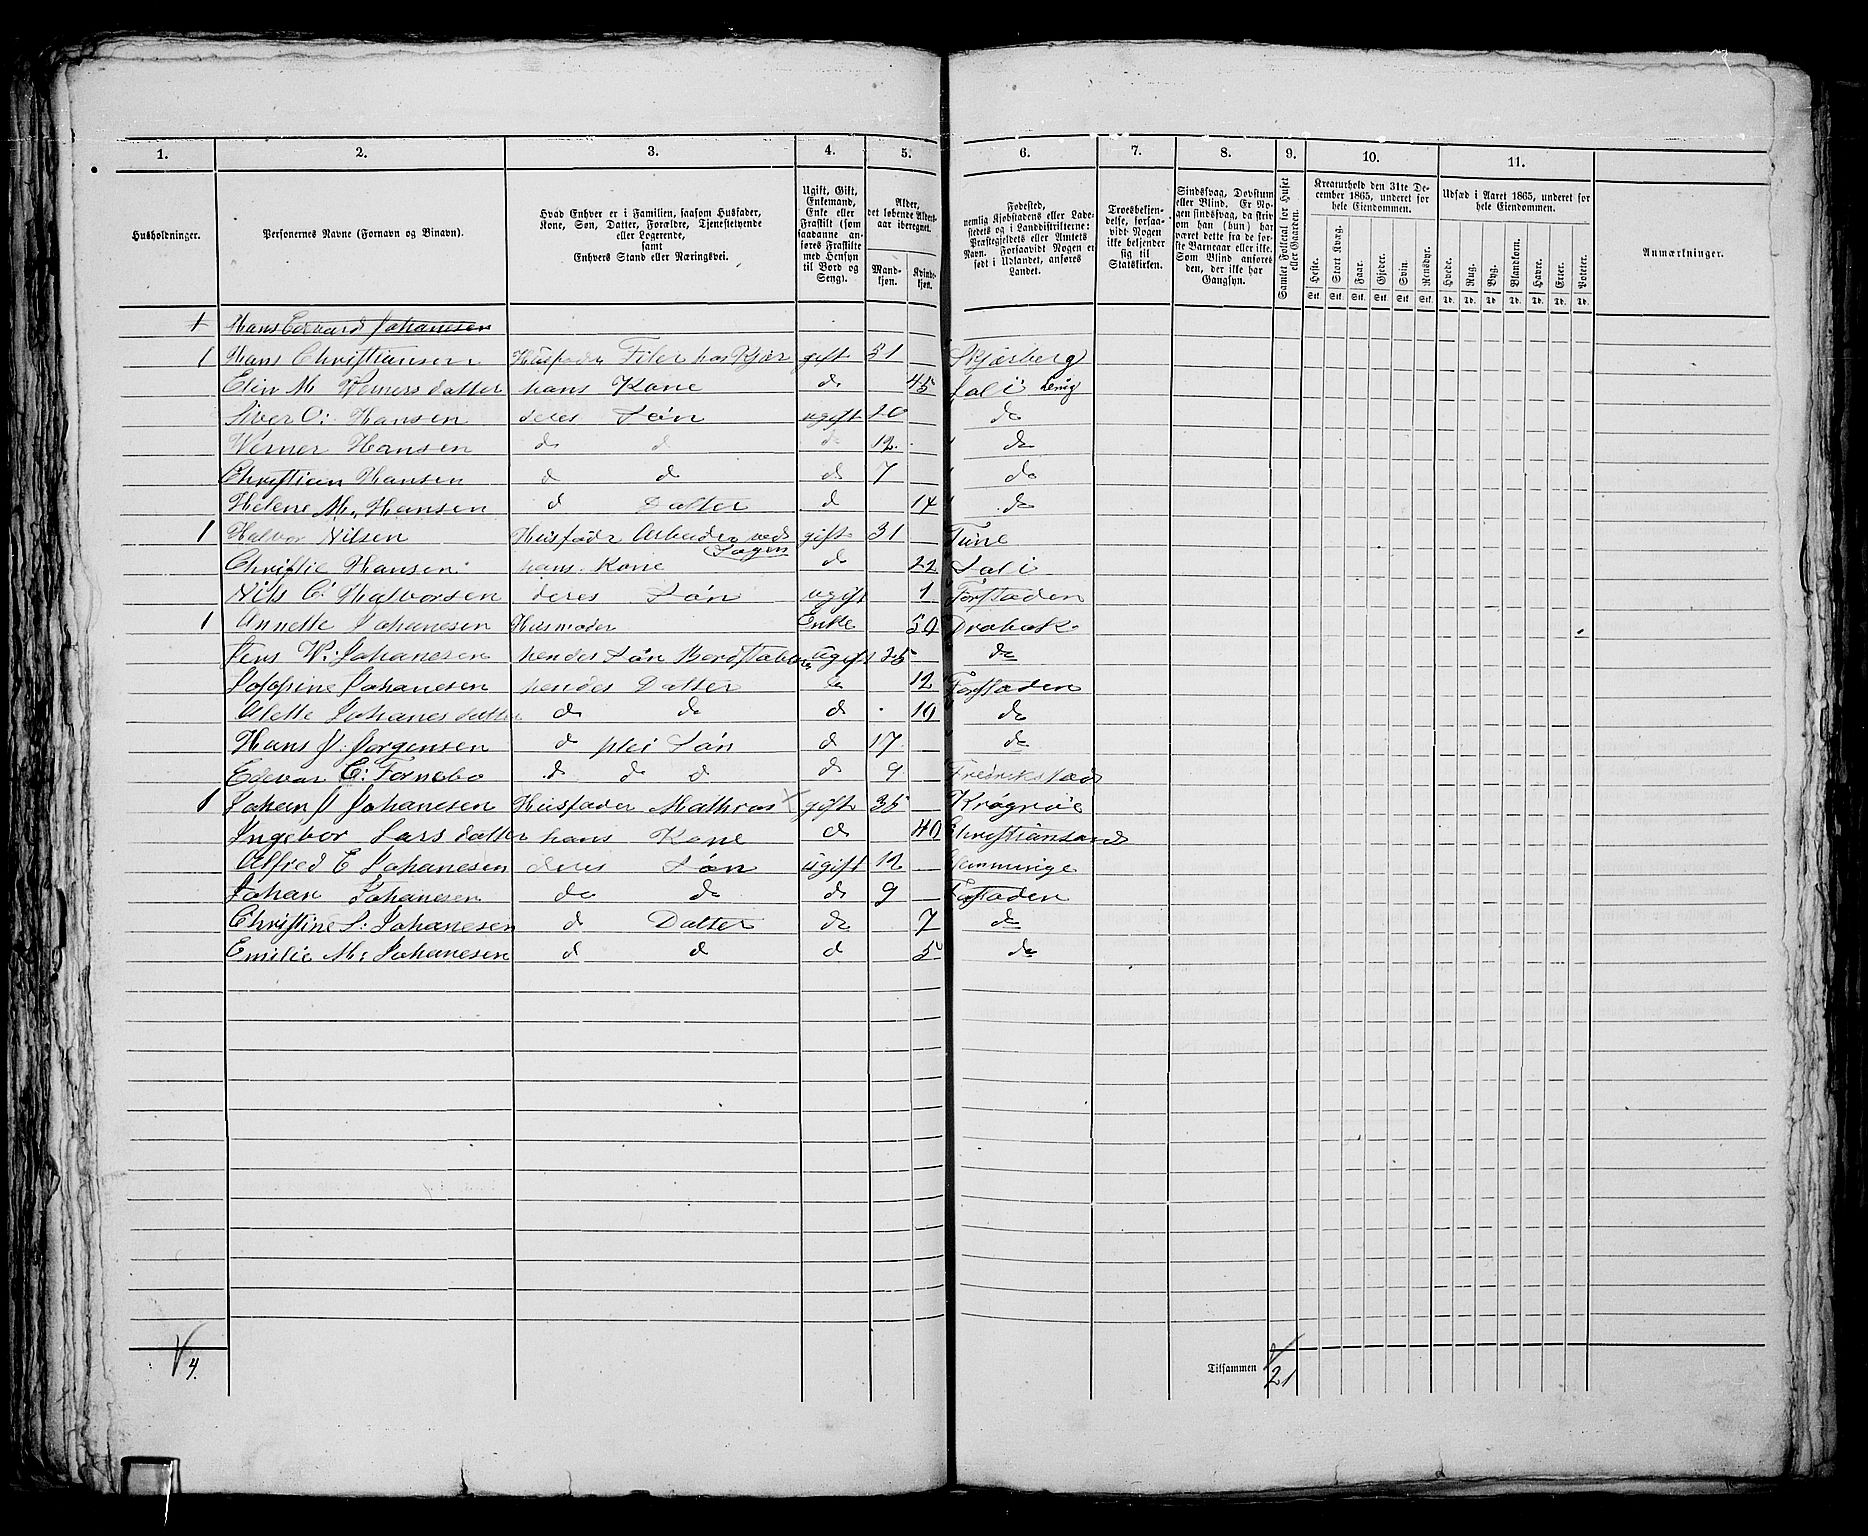 1. 2. 3. 4. 5. 6. 7. 8. 9. 10. 11.
Husholdninger.
Personernes Navne (Fornavn og Binavn).
Hvad Enhver er i Familien, saasom Husfader,
Kone, Søn, Datter, Forældre, Tjenestetyende
eller Logerende,
samt
Enhvers Stand eller Næringsvei.
Ugift, Gift,
Enkemand,
Enke eller
Fraskilt (som
saadanne an-
føres Fraskilte
med Hensyn
til Bord og
Seng).
Alder,
det løbende Alders-
aar iberegnet.
Mand-
kjøn.
Kvinde-
kjøn.
Fødested,
nemlig Kjøbstadens eller Lade-
stedets og i Landdistrikterne:
Præstegjeldets eller Amtets
Navn. Forsaavidt Nogen er
født i Udlandet, anføres
Landet.
Troesbekjen-
delse, forsaa-
vidt Nogen
ikke bekjender
sig til
Statskirken.
Sindssvag, Døvstum
eller Blind. Er No-
gen sindssvag, da skriv
om han (hun) har
været dette fra de før-
ste Barneaar eller ikke.
Som Blind anføres
den, der ikke har
Gangsyn.
Samlet Folketal for Huset
eller Gaarden.
Kreaturhold den 31te De-
cember 1865, underet for
hele Eiendommen.
Heste. Stort Kvæg. Faar. Gjeder. Svin. Rensdyr.
Stk. Stk. Stk. Stk. Stk. Stk.
Udsæd i Aaret 1865, underet for
hele Eiendommen.
Hvede. Rug. Byg. Blandkorn. Havre. Erter. Poteter.
Td. Td. Td. Td. Td. Td. Td.
Anmærkninger.
1 Hans Edvard Johanesen
1 Hans Christiansen Husfader Filer hos Kjær gift 51 Skjæberg
Elin M Werners datter hans Kone do 45 Soli Tenig
Siver O: Hansen deres Søn ugift 20 do
Werner Hansen d d do 12 do
Christian Hansen d d do 7 do
Helene M. Hansen d Datter d 14 do
1 Halvor Nilsen Husfader Arbeider ved Sagen gift 31 Tune
Christie Hansen hans Kone do 22 Soli
Nils C Halvorsen deres Søn ugift 1 Forstaden
1 Annette Johanesen Husmoder Enke 50 Drøbak
Jens W: Johanesen hendes Søn ugift 25 do
Josephine Johanesen hendes Datter do 12 Forstaden
Alette Johanes datter d d d 10 do
Hans J. Jørgensen d plei Søn d 17 do
Edevar C: Tornebo d d d d 9 Fredrikstad
1 Johan J Johanesen Husfader Mathros gift 35 Krogrøe
Ingebor Lars datter hans Kone d 40 Christiansand
Alfred E Johanesen deres Søn ugift 12 Glemminge
Johan Johanesen do do d 9 Forstaden
Christine L: Johanesen d Datter do 7 do
Emilie M: Johanesen d d d 5 do
4.
Tilsammen 21